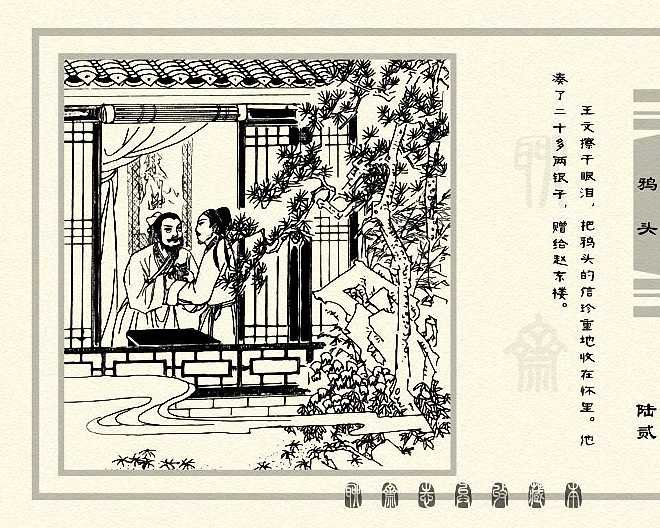 王文擦干眼泪，把鸦头的信珍重地收在怀里。他
凑了二十多两银子，赠给赵东楼。
鸦头
陆贰